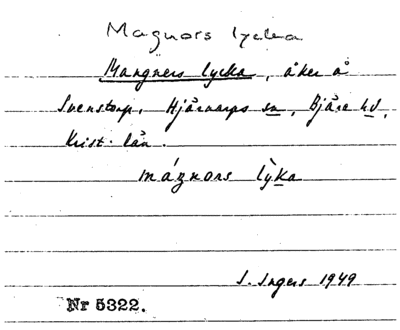 Magnors lycka
Mangners lycka, åker å
Svenstorp, Hjärnarps sn, Bjäre hd,
Krist. län.
mágnors lỳka
I. Ingers 1949
Nr 5322.